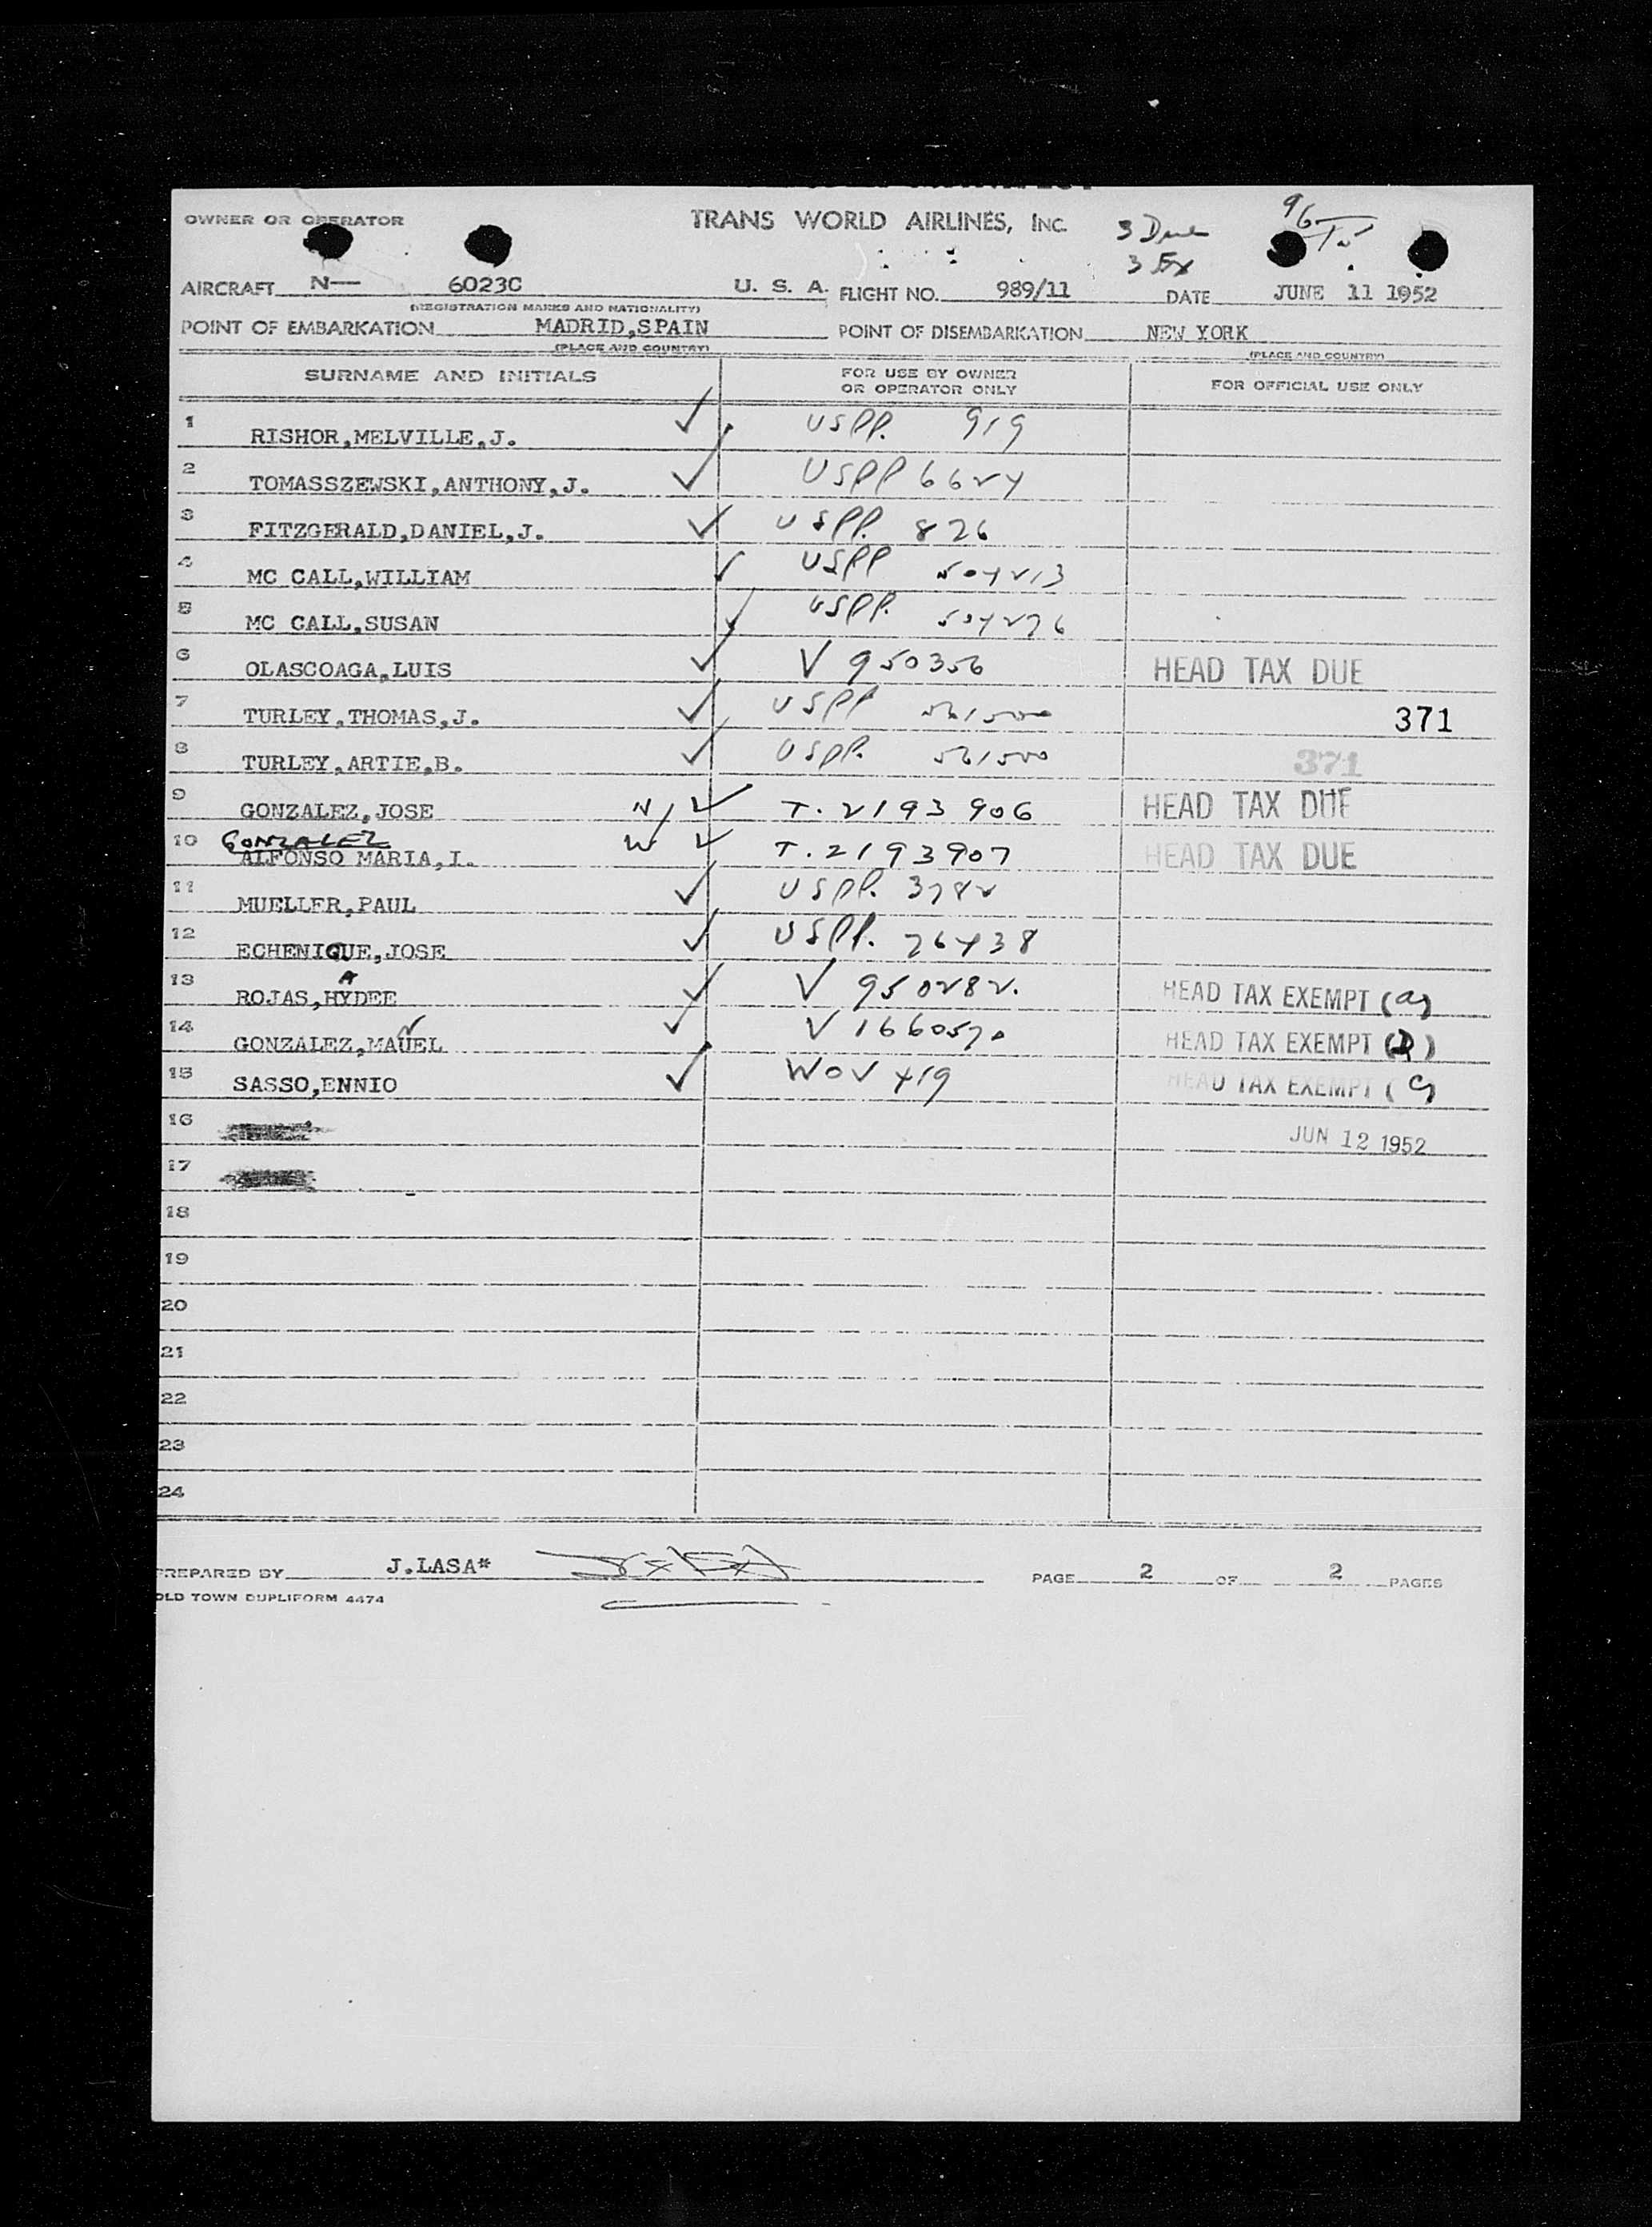 OWNER OR OPERATOR TRANS WORLD AIRLINES, INC. 3 Due
3 Ex
AIRCRAFT N— 6023C U. S. A. FLIGHT NO. 989/11 DATE JUNE 11 1952
(REGISTRATION MARKS AND NATIONALITY)
POINT OF EMBARKATION MADRID,SPAIN POINT OF DISEMBARKATION NEW YORK
(PLACE AND COUNTRY) (PLACE AND COUNTRY)
SURNAME AND INITIALS FOR USE BY OWNER OR OPERATOR ONLY FOR OFFICIAL USE ONLY
1 RISHOR,MELVILLE,J. ✓ USPP. 919
2 TOMASSZEWSKI,ANTHONY,J. ✓ USPP 6624
3 FITZGERALD,DANIEL,J. ✓ USPP. 826
4 MC CALL,WILLIAM ✓ USPP 504213
5 MC CALL,SUSAN ✓ USPP. 504276
6 OLASCOAGA,LUIS ✓ V 950356 HEAD TAX DUE
7 TURLEY,THOMAS,J. ✓ USPP 561500 371
8 TURLEY,ARTIE,B. ✓ USPP. 561500 371
9 GONZALEZ,JOSE ✓ T.2193906 HEAD TAX DUE
10 GONZALEZ ALFONSO MARIA,I. ✓ T.2193907 HEAD TAX DUE
11 MUELLER,PAUL ✓ USPP. 3782
12 ECHENIQUE,JOSE ✓ USPP. 26438
A
13 ROJAS,HYDEE ✓ V 950282. HEAD TAX EXEMPT (a)
14 GONZALEZ,MAUEL ✓ V 1660570 HEAD TAX EXEMPT (D)
15 SASSO,ENNIO ✓ WOV 419 HEAD TAX EXEMPT (
16 JUN 12 1952
17
18
19
20
21
22
23
24
PREPARED BY J.LASA* PAGE 2 OF 2 PAGES
OLD TOWN DUPLIFORM 4474